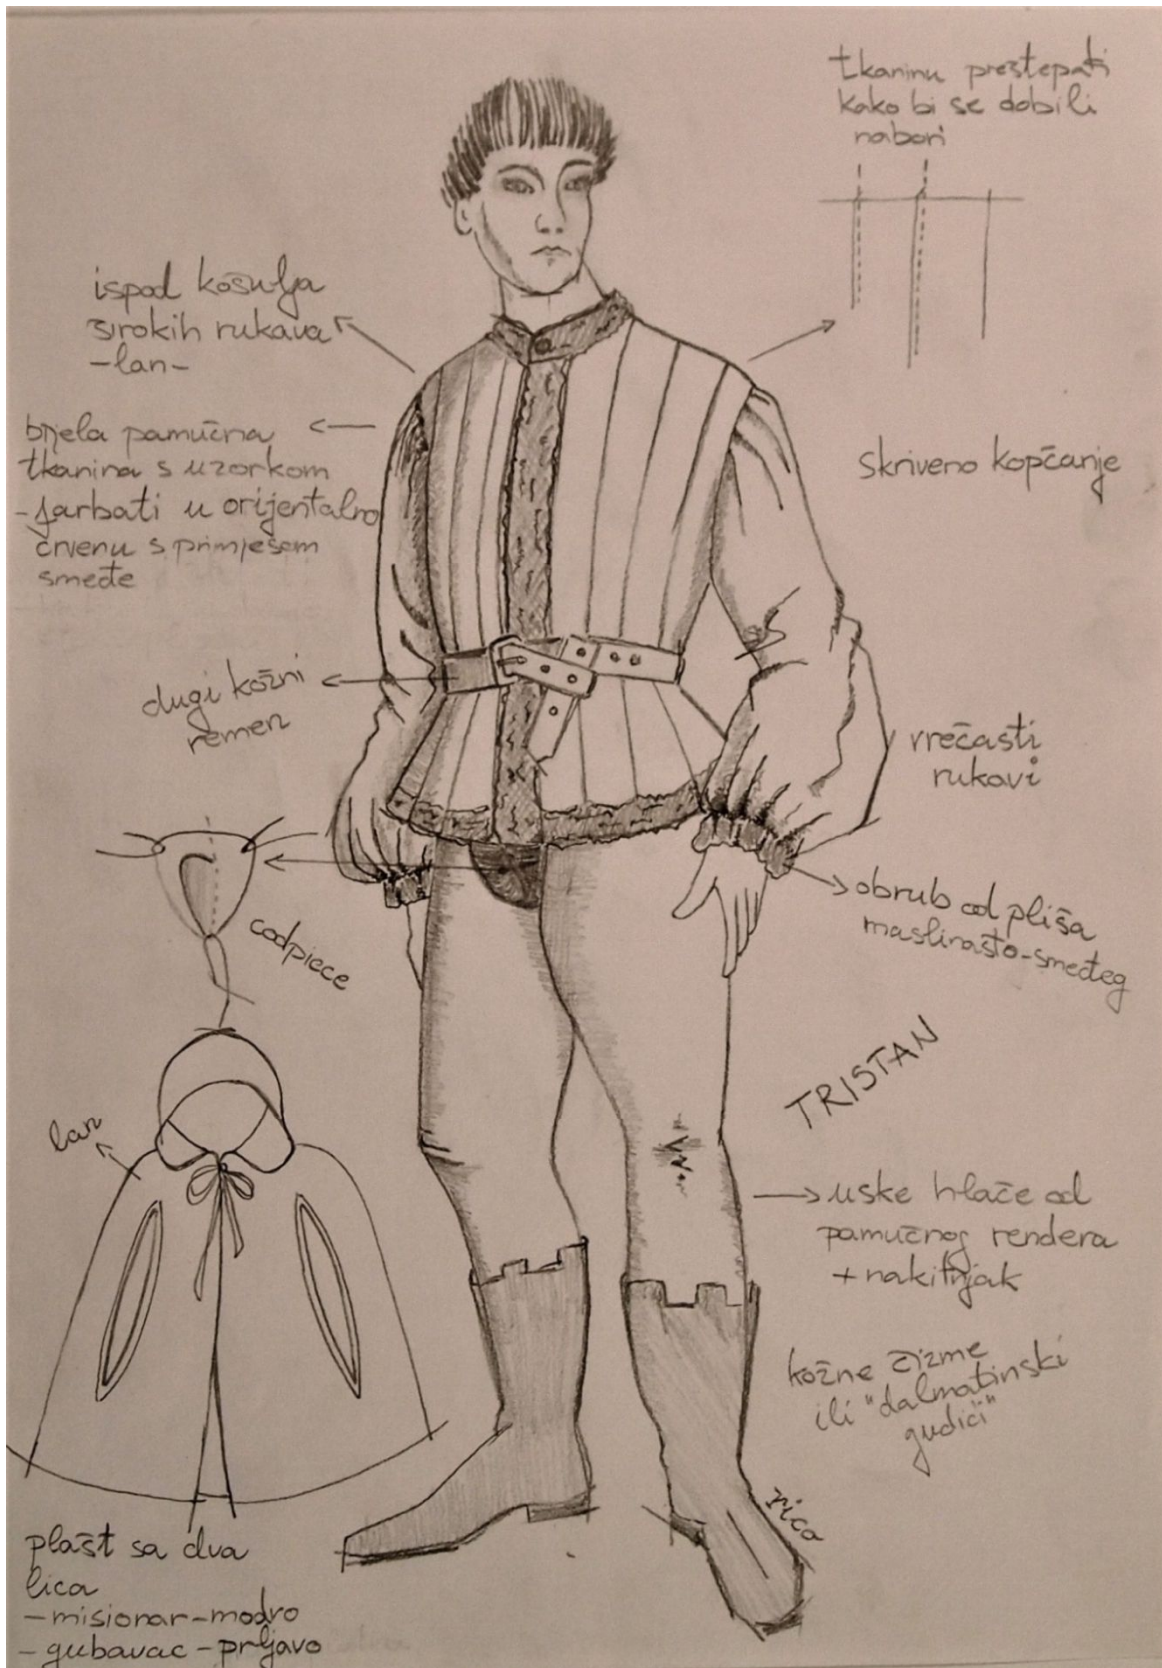 tkaninu preštepati
kako bi se dobili
nabori
ispod košulja
širokih rukava
-lan-
bijela pamučna
tkanina s uzorkom
-farbati u orijentalno
crvenu s primjesom
smeđe
skriveno kopčanje
dugi kožni
remen
vrečasti
rukavi
obrub od pliša
maslinasto-smeđeg
codpiece
TRISTAN
lan
uske hlače od
pamučnog rendera
+nakitnjak
kožne čizme
ili "dalmatinski
gudići"
plašt sa dva
lica
-misionar-modro
-gubavac-prljavo